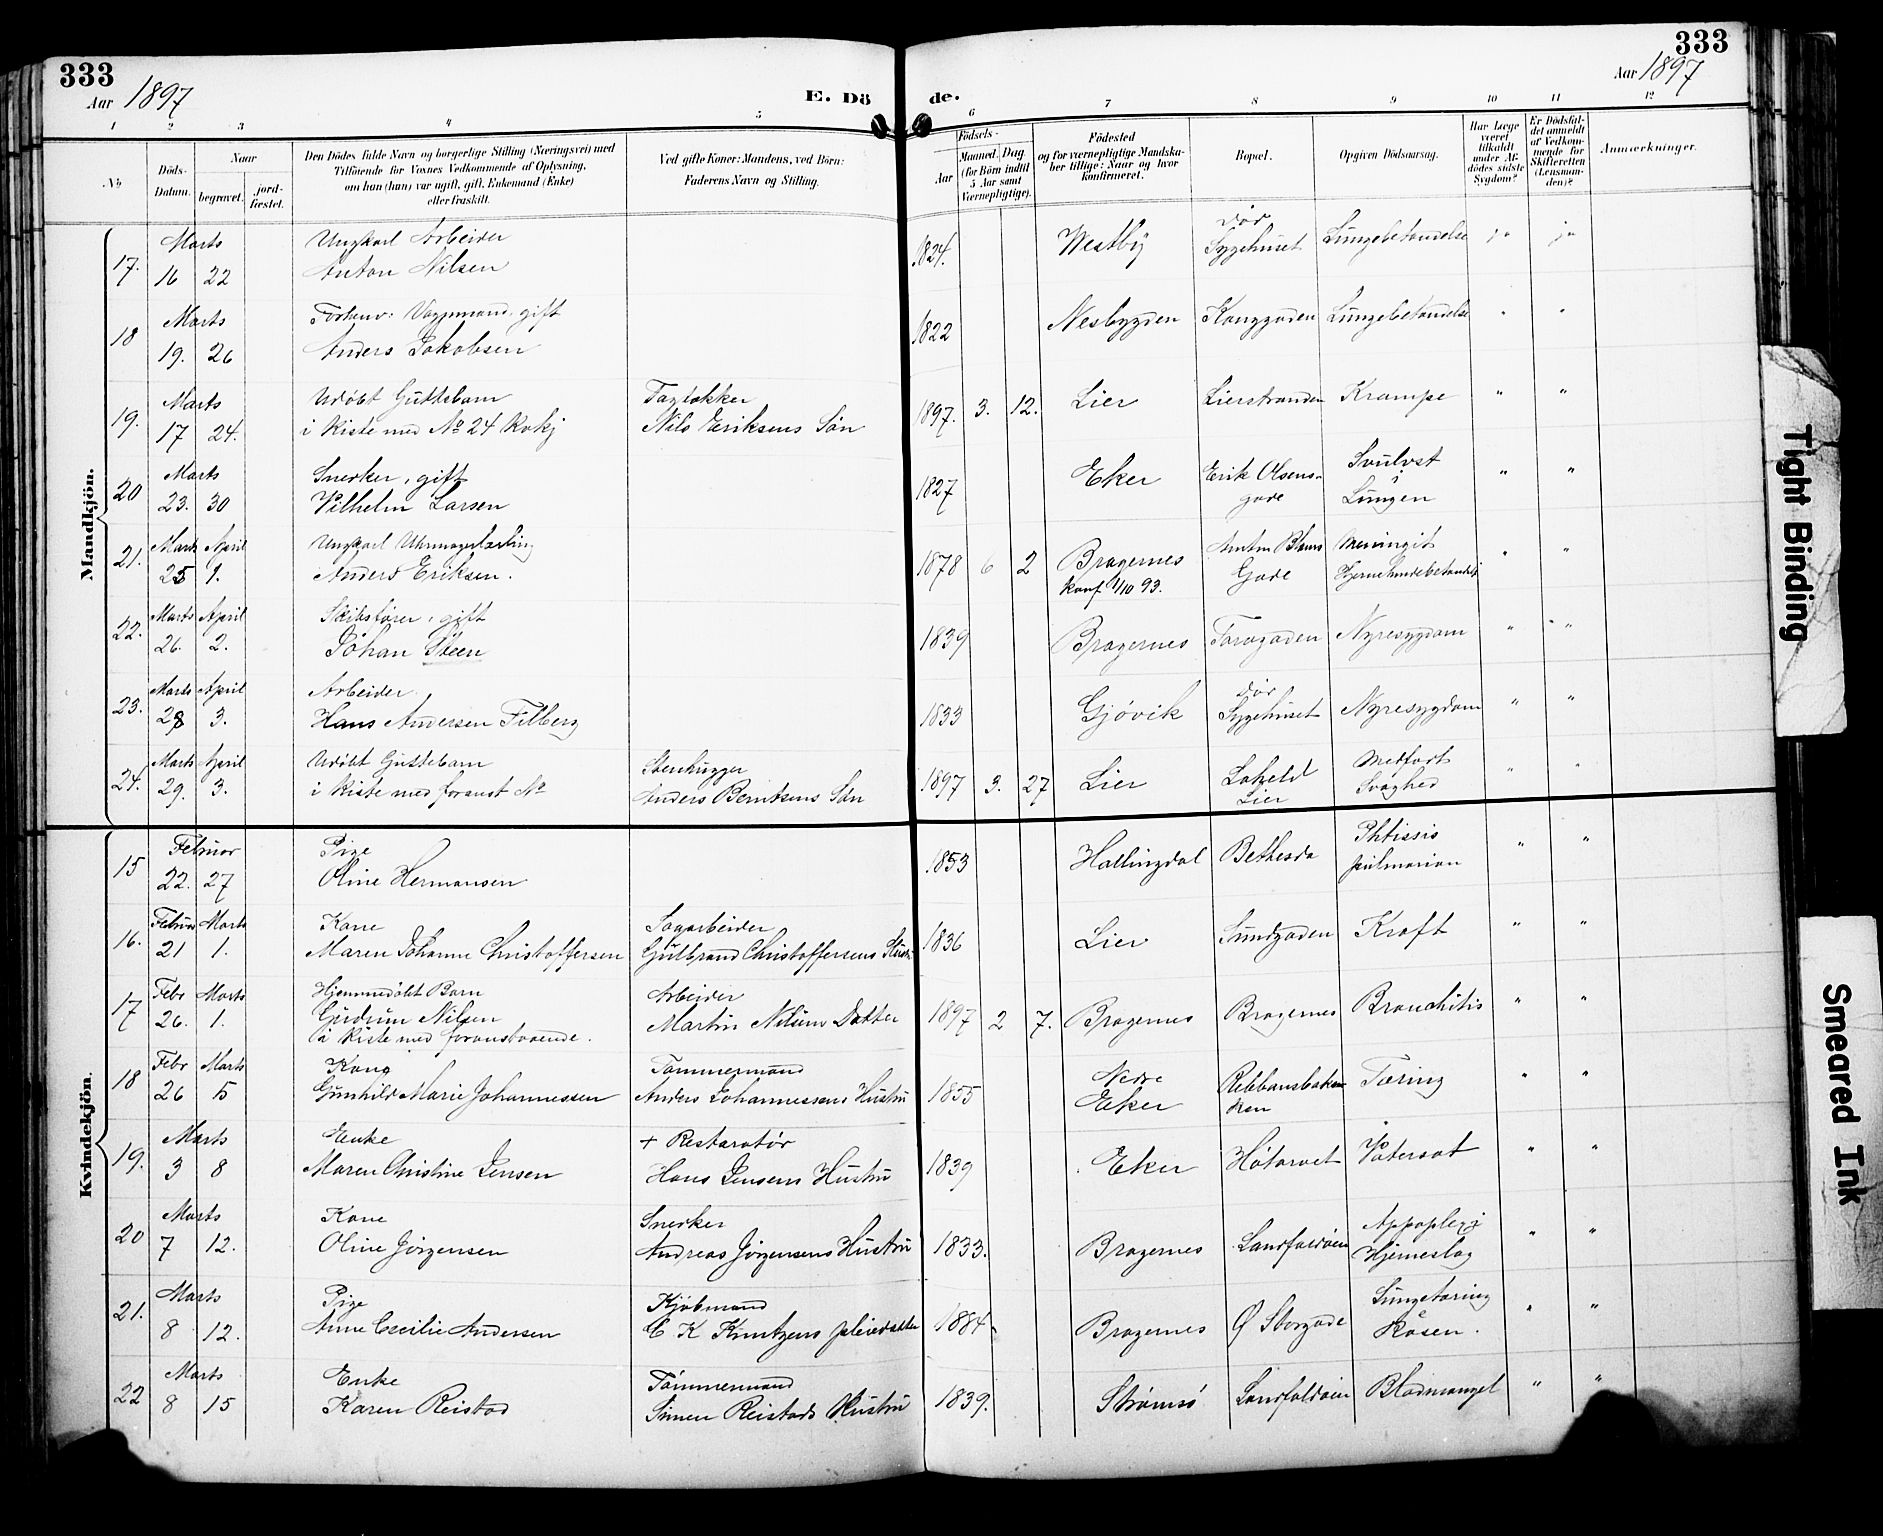 333
Aar 1897
E. Dö
de.
333
Aar 1897
1 2 3 4 5 6 7 8 9 10 11 12
No
Döds-
Datum.
Naar
begravet.
jord-
fæstet.
Den Dödes fulde Navn og borgerlige Stilling (Næringsvei) med
Tilföiende for Voxnes Vedkommende af Oplysning,
om hun (han) var ugift, gift, Enkemand (Enke)
eller fraskilt.
Ved gifte Koner: Mandens, ved Börn:
Faderens Navn og Stilling.
Födsels-
Aar
Maaned. Dag
(for Börn indtil
5 Aar samt
Værnepligtige).
Födested
og for værnepligtige Mandska-
ber tillige: Naar og hvor
konfirmeret.
Bopæl.
Opgiven Dödsaarsag.
Har Læge
været
tilkaldt
under Af-
dödes sidste
Sygdom?
Er Dödsfal-
det anmeldt
af Vedkom-
mende for
Skifteretten
(Lensman-
den)?
Anmærkninger.
Mandkjön.
17. Marts Ungkarl Arbeider död
16 22 Anton Nilsen 1824. Westby Sygehuset Lungebetændelse ja ja
18 Marts gift
19. 26 Anders Jakobsen 1822 Nesbygden Konggaden Lungebetændelse " "
19. Marts Udöbt Guttebarn
17 24. i Kiste med No 24 Kvkj Nils Eriksens Sön 1897. 3. 12. Lier Lierstranden Krampe " "
20 Marts Snerker, gift Svulvst
23. 30 Vilhelm Larsen 1827 Eker Erik Olsens- gade i Lungen " "
21. Marts April Ungkarl Uhrmagerlærling
25 1. Anders Eriksen. 1878 6 2 Bragernes Gade Meningit
Konf 1/10 93. Hjernehindebetændelse " "
22. Marts April Skibsförer, gift
26. 2. Johan Steen 1839 Bragernes Torvgaden Nyresygdom " "
23. Marts April Arbeider död
28 3. Hans Andersen Filberg 1833 Gjövik Sygehuset Nyresygdom " "
24. Marts April Udöbt Guttebarn Stenhugger Medfødt
29. 3. i Kiste med foranst No Anders Berntsens Sön 1897 3. 27 Lier Lier Svaghed " "
Kvindekjön.
15 Februar Pige Phtissis
22. 27 Oline Hermansen 1853 Hallingdal Bethesda pulmonion " "
16. Februar Marts Kone Sagarbeider
21 1. Maren Johanne Christoffersen Gulbrand Christoffersens Hustru 1836 Lier Sundgaden Kræft " "
17 Febr Marts Hjemmedöbt Barn Arbeider
26. 1. Gudrun Nilsen Martin Nilsens Datter 1897 2 7. Bragernes Bragernes Bronchitis " "
i Kiste med foranstaaende.
18 Febr Marts Kone Tömmermand Nedre
26 5 Gunhild Marie Johannessen Anders Johannessens Hustru 1855 Eker Tæring " "
19. Marts Enke + Restaratör
3 8 Maren Christine Jensen Hans Jensens Hustru 1839 Eker Vatersot " "
20 Marts Kone Snerker Appoplexi
7 12. Oline Jörgensen Andreas Jörgensens Hustru 1833. Bragernes Landfaldöien Hjerneslag " "
21. Marts Pige Kjöbmand Lungetæring
8 12. Anne Cecilie Andersen C K Knutzens pleiedatter 1884 Bragernes Ø Storgade Rosen. " "
22 Marts Enke Tömmermand
8 15 Karen Reistad Simen Reistads Hustru 1839. Strömsö Landfaldöien Blodmangel " "
Tight Binding
Smeared Ink